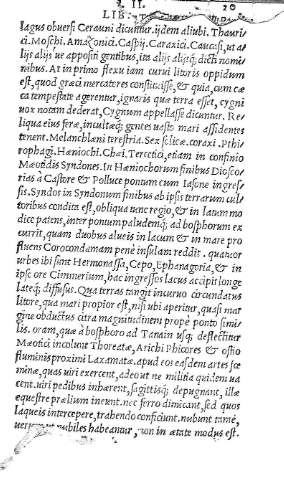 LIB. II. 20
lagus obuersi Cerauni dicuntur. ijdem aliubi. Thauri
ci. Moschi. Amazonici. Caspij. Caraxici. Caucasi, ut a
lijs alijs ue appositi gentibus, ita alijs alijsq; dicti nomi
nibus. At in primo flexu iam curui litoris oppidum
est, quod græci mercatores constituisse, & quia, cum cæ
ca tempestate agerentur, ignaris quæ terra esset, cygni
uox notam dederat, Cygnum appellasse dicuntur. Re
liqua eius feræ, incultæq; gentes uasto mari assidentes
tenent. Melanchlæni terestria. Sex solicæ. coraxi. Pthi
rophagi. Hæniochi. Chæi. Tercetici, etiam in confinio
Mæotidis Syndones. In Hæniochorum finibus Dioscu
rias à Castore & Polluce pontum cum Iasone ingres
sis. Syndos in Syndonum finibus ab ipsis terrarum cul
toribus condita est, obliqua tunc regio, & in latum mo
dice patens, inter pontum paludemq; ad bosphorum ex
currit, quam duobus alueis in lacum & in mare pro
fluens Corocondamam penè insulam reddit. quatuor
urbes ibi sunt Hermonassa, Cepo, Ephanagoria, & in
ipso ore Cimmerium, hac ingressos lacus accipit longe
lateq; diffusus. Qua terras tangit incuruo circundatus
litore, qua mari propior est, nisi ubi aperitur, quasi mar
gine obductus citra magnitudinem propè ponto simi
lis. oram, quæ à bosphoro ad Tanain usq; deflectitur
Mæotici incolunt Thoreatæ, Arichi Phicores & ostio
fluminis proximi Iaxamatæ. apud eos easdem artes fœ
minæ, quas uiri exercent, adeo ut ne militia quidem ua
cent. uiri pedibus inhærent, sagittisq; depugnant, illæ
equestre prælium ineunt. nec ferro dimicant, sed quos
laqueis intercepere, trahendo conficiunt. nubunt tamē,
nubiles habeantur, non in ætate modus est.